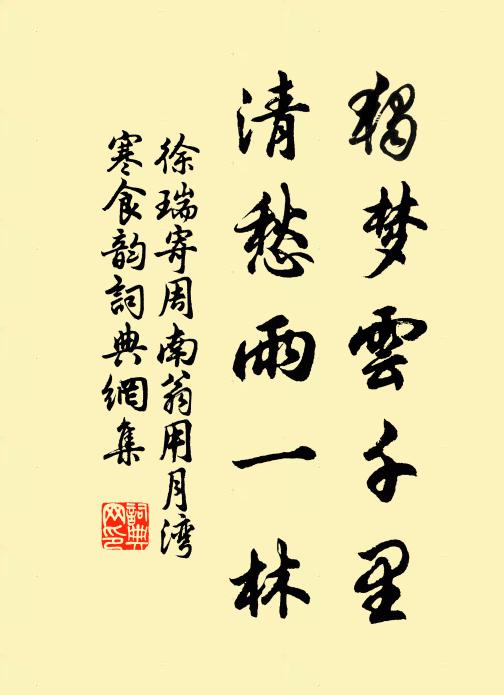 独梦雲千里
清愁雨一林
徐瑞寄周南翁用月湾
寒食韵詞典網集
詞典網印